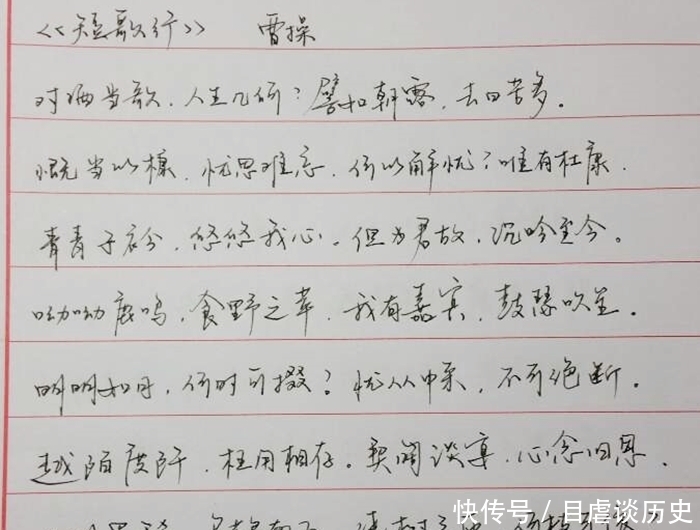 《短歌行》 曹操
对酒当歌，人生几何？譬如朝露，去日苦多。
慨当以慷，忧思难忘，何以解忧？唯有杜康．
青青子衿，悠悠我心。但为君故，沉吟至今。
呦呦鹿鸣，食野之苹，我有嘉宾，鼓瑟吹笙。
明明如月，何时可掇？忧从中来，不可绝断。
越陌度阡，枉用相存。契阔谈宴，心念旧恩．
快传号／目虐谈历史